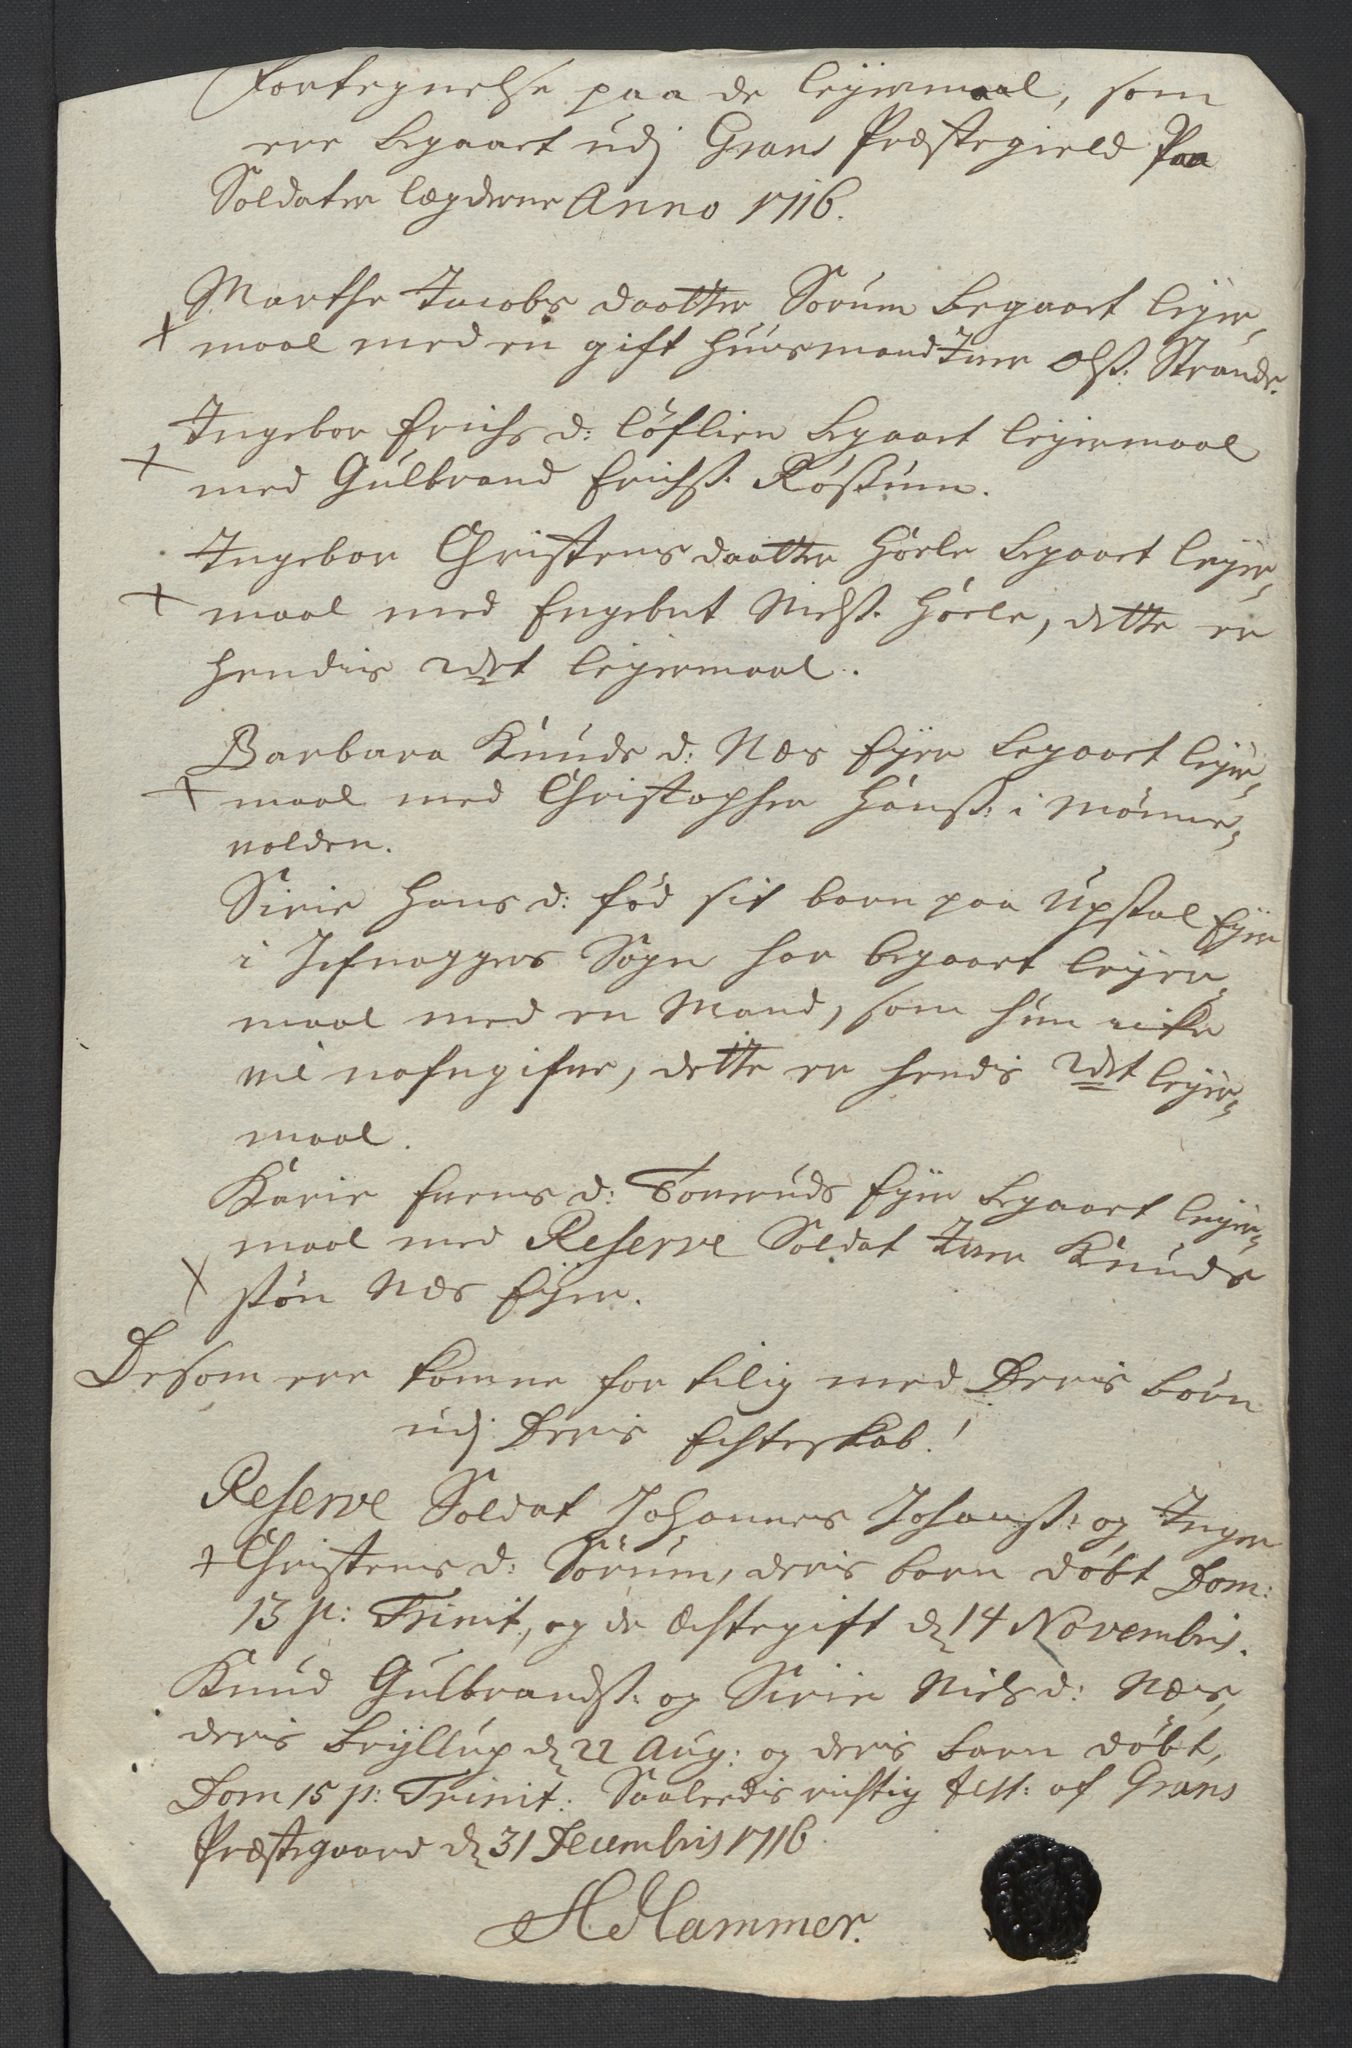 Fortegnelse paa de leyermaal, som
ere begaaet udj Grans Præstegield Paa
Soldater lægderne Anno 1716.
Marthe Jacobs daatter Sorum begaaet leyer,,
+ maal med en gift huusmand Iver Olss: Strande.
Ingebor Erichs d: Löflien begaaet leyermaal
+ med Gulbrand Erichss. Rössum.
Ingebor Christens daatter Hörle begaaet leyer,,
+ maal med Engebret Nielss. Hörle, dette er
hendis 2det leyermaal.
Barbara Knuds d: Næs Eyer begaaet leyer,,
+ maal med Christopher Hanss: i
volden.
Sirie Hans d: fød sit barn paa Upstal Eyer
i Jefnaggers Sogn har begaaet leyer,,
maal med en Mand, som hun icke
vil nafngifve, dette er hendis 2det leyer,,
maal.
Karie Evens d: Eyer begaaet leyer,,
maal med Reserve Soldat Iver Knuds
+ søn Næs Eyer.
De som ere komne for tilig med Deris börn
udj Deris Echteskab!
Reserve Soldat Johannes Johanss: og Inger
+ Christens d: Sörum, deris barn döbt Dom:
13 p: Trinit, og de Echtegift d 14 Novembris.
Knud Gulbrandss: og Sirie Niels d: Næs,
deris bryllup d 22 Aug: og deris barn döbt,
Dom 15 p: Trinit: Saaledis richtig test: af Grans
Præstegaard d 31 Decembris 1716
H. Hammer.